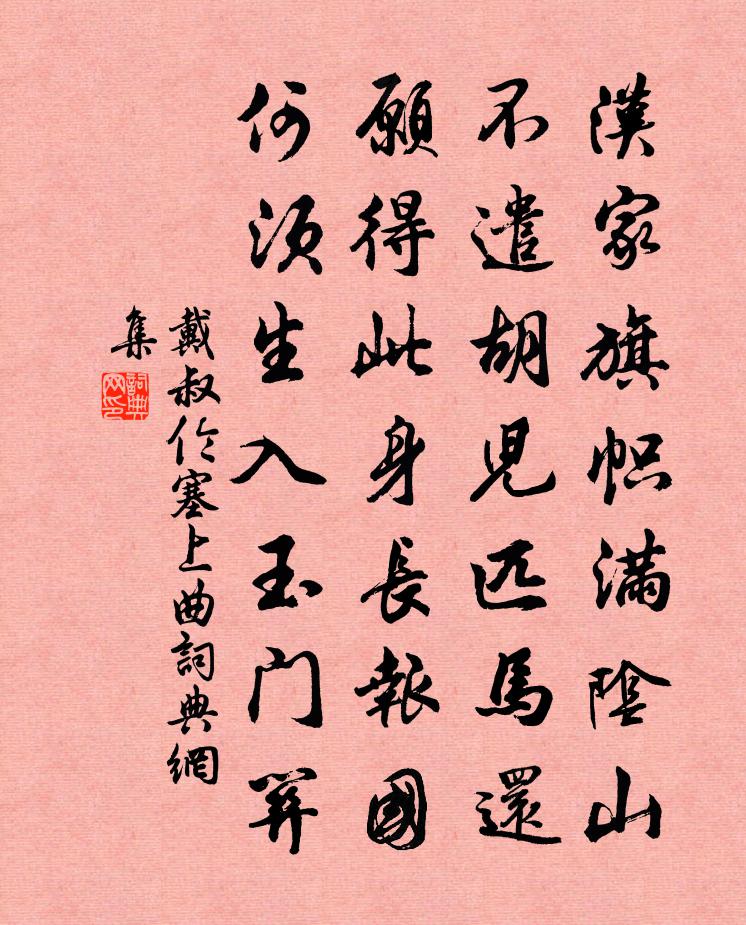 漢家旗幟滿陰山
不遣胡兒匹馬還
願得此身長報國
何須生入玉門關
戴叔倫塞上曲詞典網
集
詞典
网印